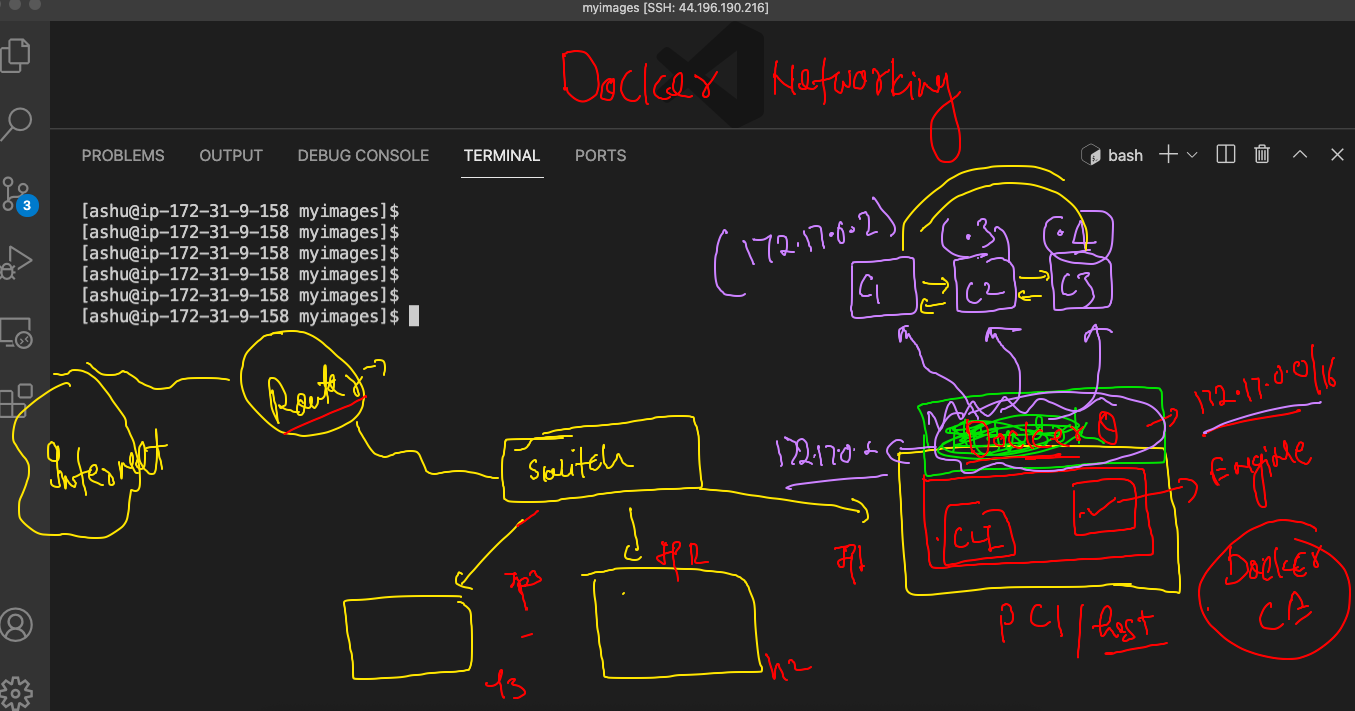 myimages [SSH: 44.196.190.216]
Docker Networking
PROBLEMS OUTPUT DEBUG CONSOLE TERMINAL PORTS bash
3
[ashu@ip-172-31-9-158 myimages]$
[ashu@ip-172-31-9-158 myimages]$
[ashu@ip-172-31-9-158 myimages]$
[ashu@ip-172-31-9-158 myimages]$
[ashu@ip-172-31-9-158 myimages]$
[ashu@ip-172-31-9-158 myimages]$
(172.17.0.2) (.3) (.4)
C1 C2 C3
Router
172.17.0.0/16
Internet
switch
Docker 0
Engine
CLI
Docker
CE
PC1/host
h2
h3